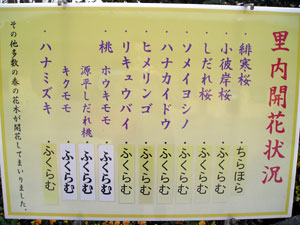 里内開花状況
・緋寒桜 ・ちらほら
・小彼岸桜 ・ふくらむ
・しだれ桜 ・ふくらむ
・ソメイヨシノ ・ふくらむ
・ハナカイドウ ・ふくらむ
・ヒメリンゴ ・ふくらむ
・リキュウバイ ・ふくらむ
・桃 ホウキモモ ふくらむ
源平しだれ桃 ふくらむ
キクモモ ふくらむ
・ハナミズキ ・ふくらむ
その他多数の春の花木が開花してまいりました。